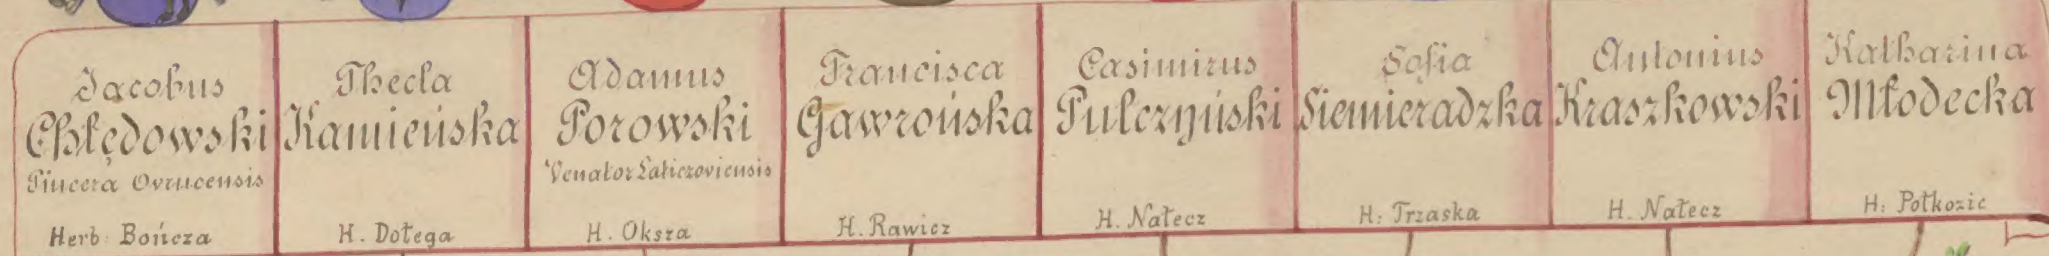 Jacobus
Chłędowski
Pincera Ovrucensis
Herb: Bończa
Thecla
Kamieńska
H. Dołega
Adamus
Porowski
Venator Laticzoviensis
H. Oksza
Francisca
Gawrońska
H. Rawicz
Casimirus
Pulczyński
H. Nałecz
Sofia
Siemieradzka
H: Trzaska
Antonius
Kraszkowski
H. Nałecz
Katharina
Młodecka
H: Połkozic